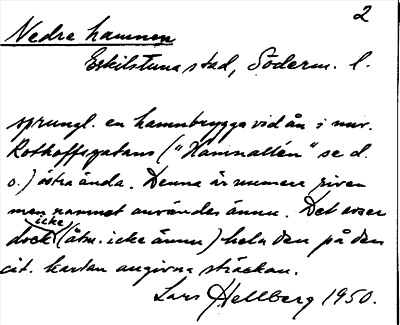 2
Nedre hamnen
Eskilstuna stad, Söderm. l.
sprungl. en hamnbrygga vid ån i nuv.
Rothoffsgatans ("Hamnallén" se d.
o.) östra ända. Denna är numera riven
men namnet användes ännu. Det avser
icke
dock (åtm. icke ännu) hela den på den
cit. kartan angivna sträckan.
Lars Hellberg 1950.